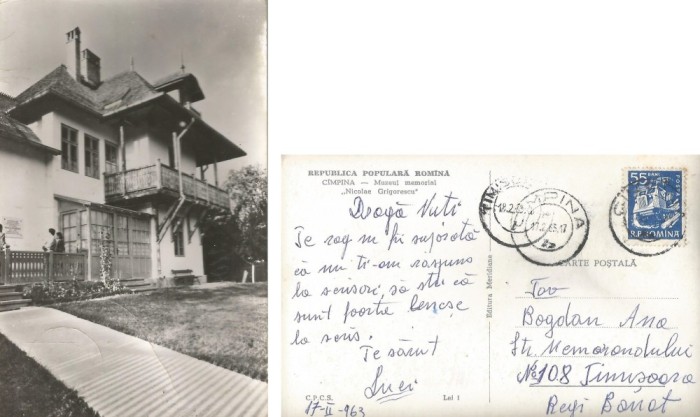 REPUBLICA POPULARĂ ROMÎNA
CÎMPINA — Muzeul memorial
„Nicolae Grigorescu”
Dragă Nuti
Te rog nu fii supărată
că nu ți-am răspuns
la scrisori, să știi că
sunt foarte leneșe
la scris.
Te sărut
Luci
17-II-963
C.P.C.S.
Lei 1
Editura Meridiane
TIMIȘ
CÎMPINA
55 BANI
POSTA
R.P.ROMINA
CARTE POȘTALĂ
Tov
Bogdan Ana
Str. Memorandului
No 108 Timișoara
Regi Banat